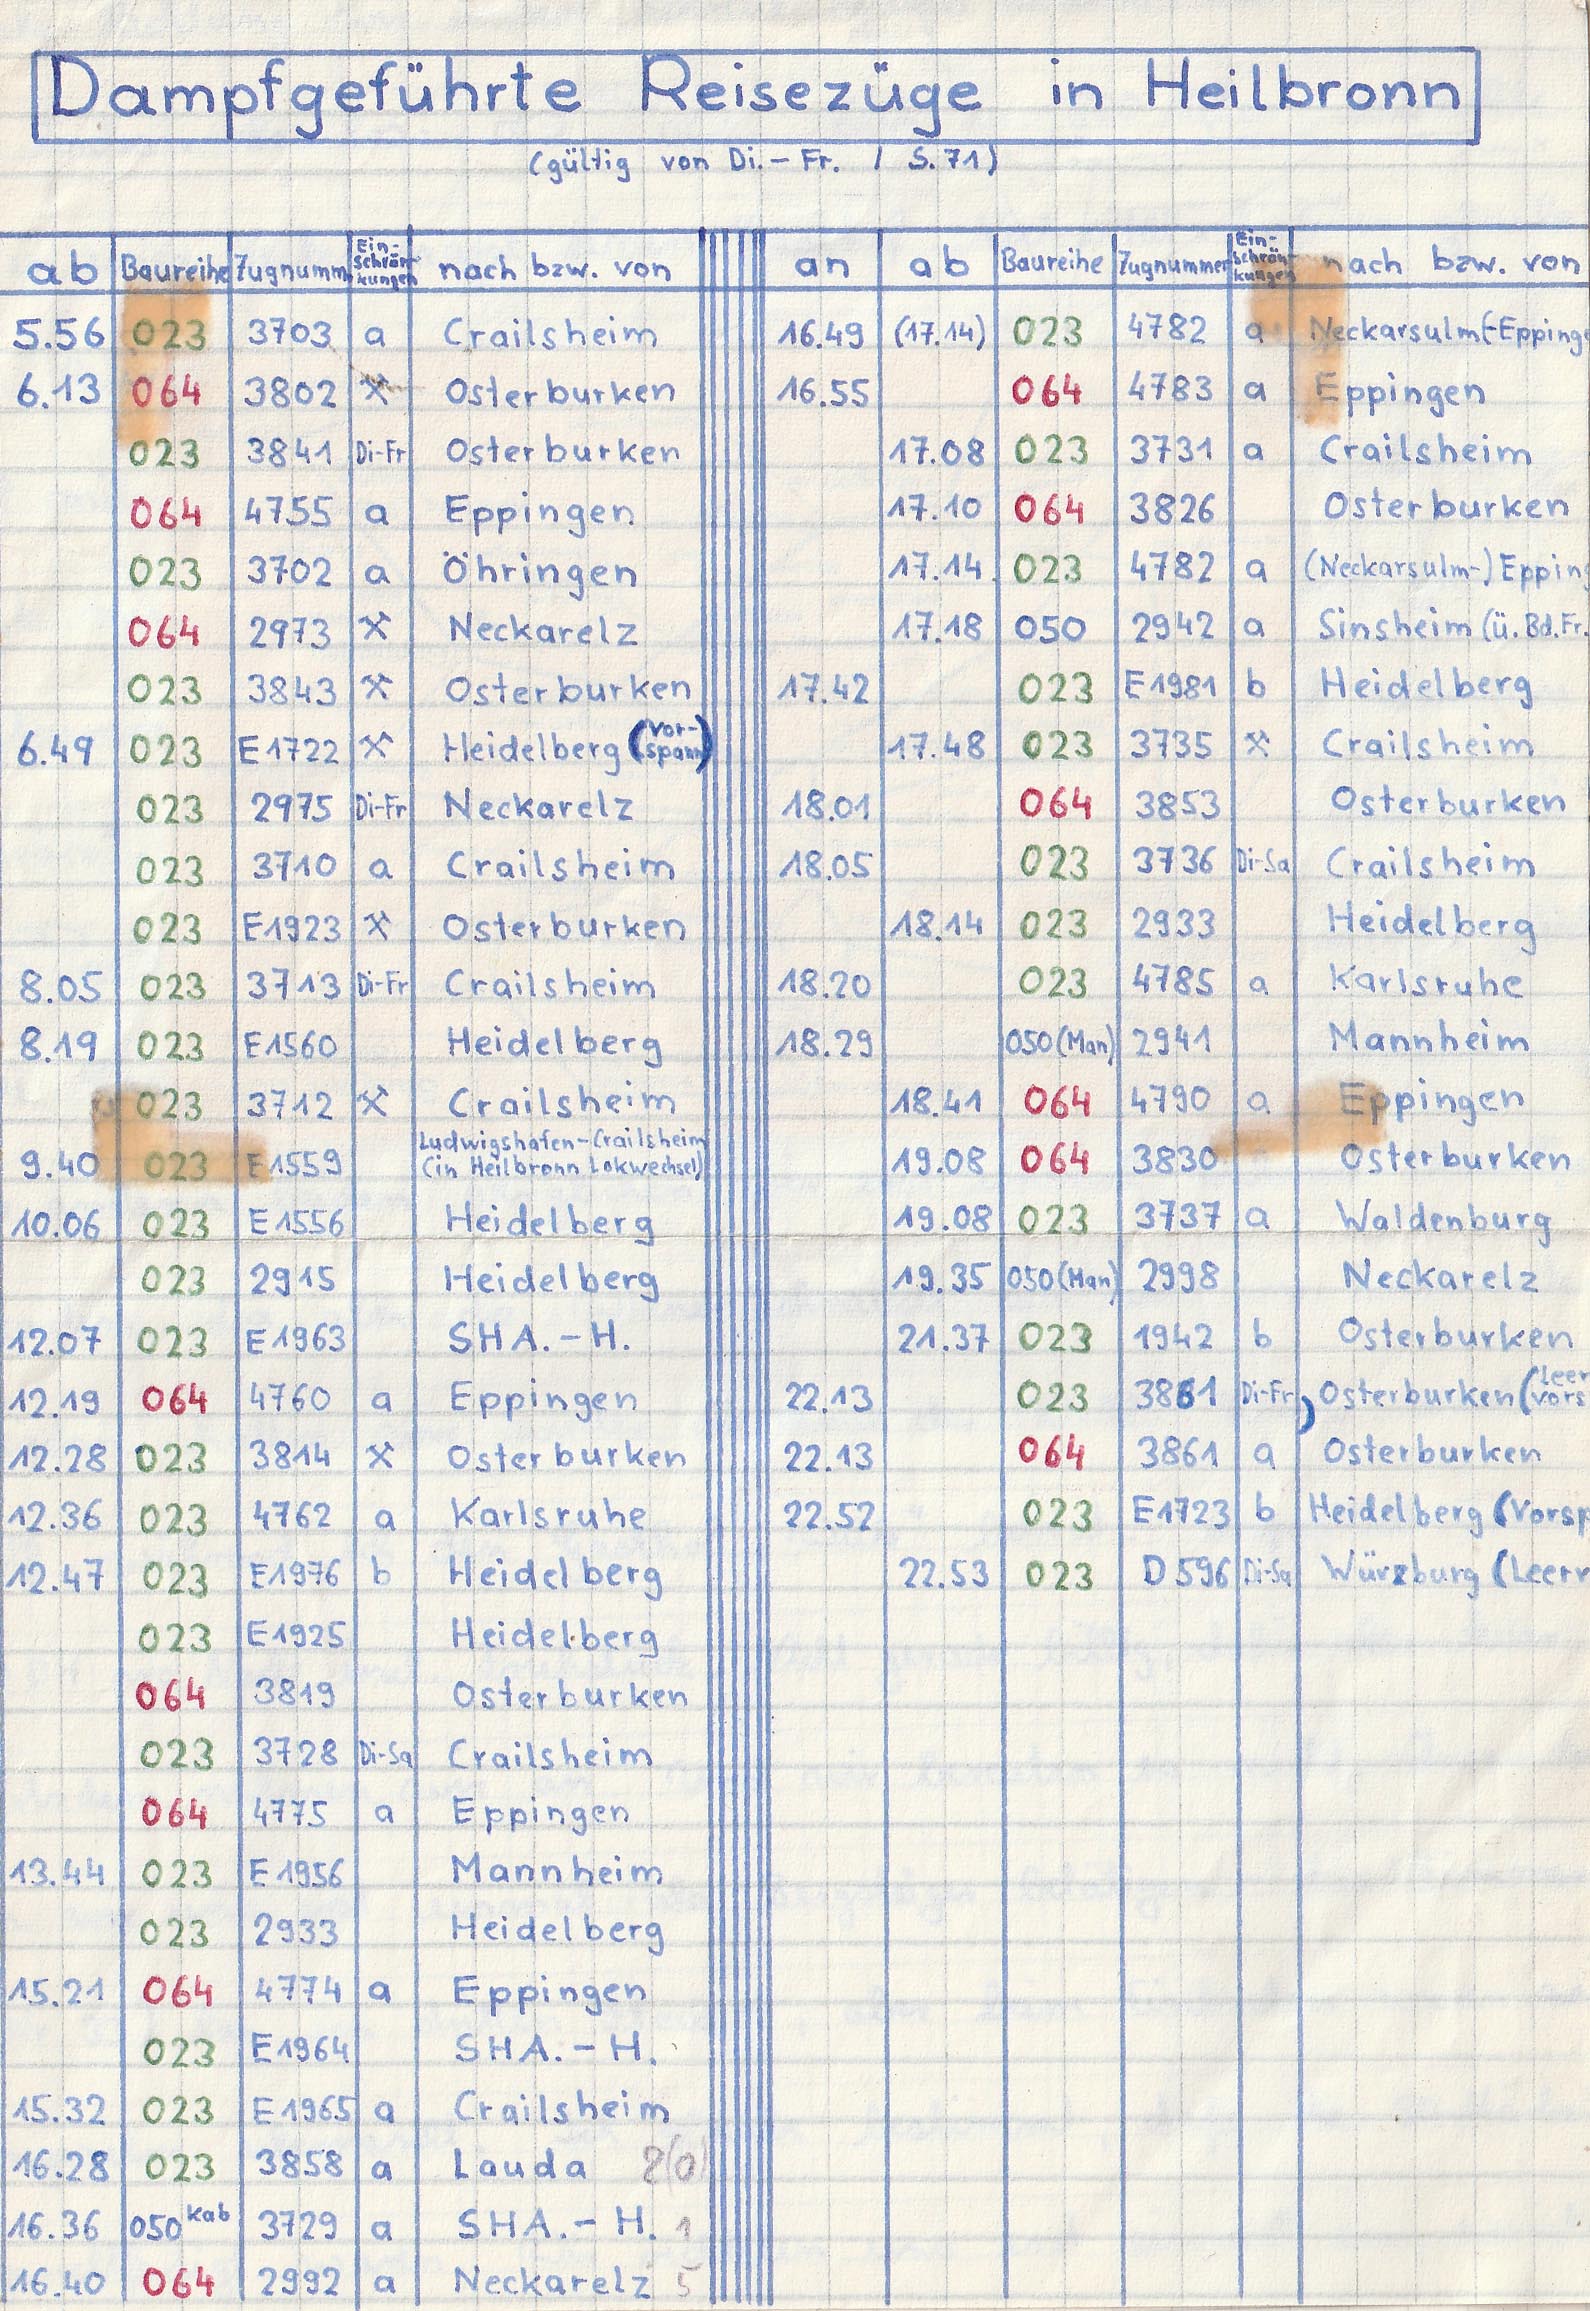 Dampfgeführte Reisezüge in Heilbronn
(gültig von Di.- Fr. / S. 71)
ab Baureihe Zugnumm Ein-schrän-kungen nach bzw. von
5.56 023 3703 a Crailsheim
6.13 064 3802 ⚒ Osterburken
023 3841 Di-Fr Osterburken
064 4755 a Eppingen
023 3702 a Öhringen
064 2973 ⚒ Neckarelz
023 3843 ⚒ Osterburken
6.49 023 E1722 ⚒ Heidelberg (Vor-spann)
023 2975 Di-Fr Neckarelz
023 3710 a Crailsheim
023 E1923 ⚒ Osterburken
8.05 023 3713 Di-Fr Crailsheim
8.19 023 E1560 Heidelberg
023 3712 ⚒ Crailsheim
9.40 023 E1559 Ludwigshafen-Crailsheim (in Heilbronn Lokwechsel)
10.06 023 E1556 Heidelberg
023 2915 Heidelberg
12.07 023 E1963 SHA.-H.
12.19 064 4760 a Eppingen
12.28 023 3814 ⚒ Osterburken
12.36 023 4762 a Karlsruhe
12.47 023 E1976 b Heidelberg
023 E1925 Heidelberg
064 3819 Osterburken
023 3728 Di-Sa Crailsheim
064 4775 a Eppingen
13.44 023 E1956 Mannheim
023 2933 Heidelberg
15.21 064 4774 a Eppingen
023 E1964 SHA.-H.
15.32 023 E1965 a Crailsheim
16.28 023 3858 a Lauda
16.36 050 Kab 3729 a SHA.-H. 1
16.40 064 2992 a Neckarelz 5
an ab Baureihe Zugnummer Ein-schrän-kungen nach bzw. von
16.49 (17.14) 023 4782 a Neckarsulm(-Epping
16.55 064 4783 a Eppingen
17.08 023 3731 a Crailsheim
17.10 064 3826 Osterburken
17.14 023 4782 a (Neckarsulm-) Epping
17.18 050 2942 a Sinsheim (ü. Bd. Fr.
17.42 023 E1981 b Heidelberg
17.48 023 3735 ⚒ Crailsheim
18.01 064 3853 Osterburken
18.05 023 3736 Di-Sa Crailsheim
18.14 023 2933 Heidelberg
18.20 023 4785 a Karlsruhe
18.29 050 (Man) 2941 Mannheim
18.41 064 4790 a Eppingen
19.08 064 3830 Osterburken
19.08 023 3737 a Waldenburg
19.35 050 (Man) 2998 Neckarelz
21.37 023 1942 b Osterburken
22.13 023 3861 Di-Fr Osterburken (Leer vors
22.13 064 3861 a Osterburken
22.52 023 E1723 b Heidelberg (Vorsp
22.53 023 D 596 Di-Sa Würzburg (Leerv